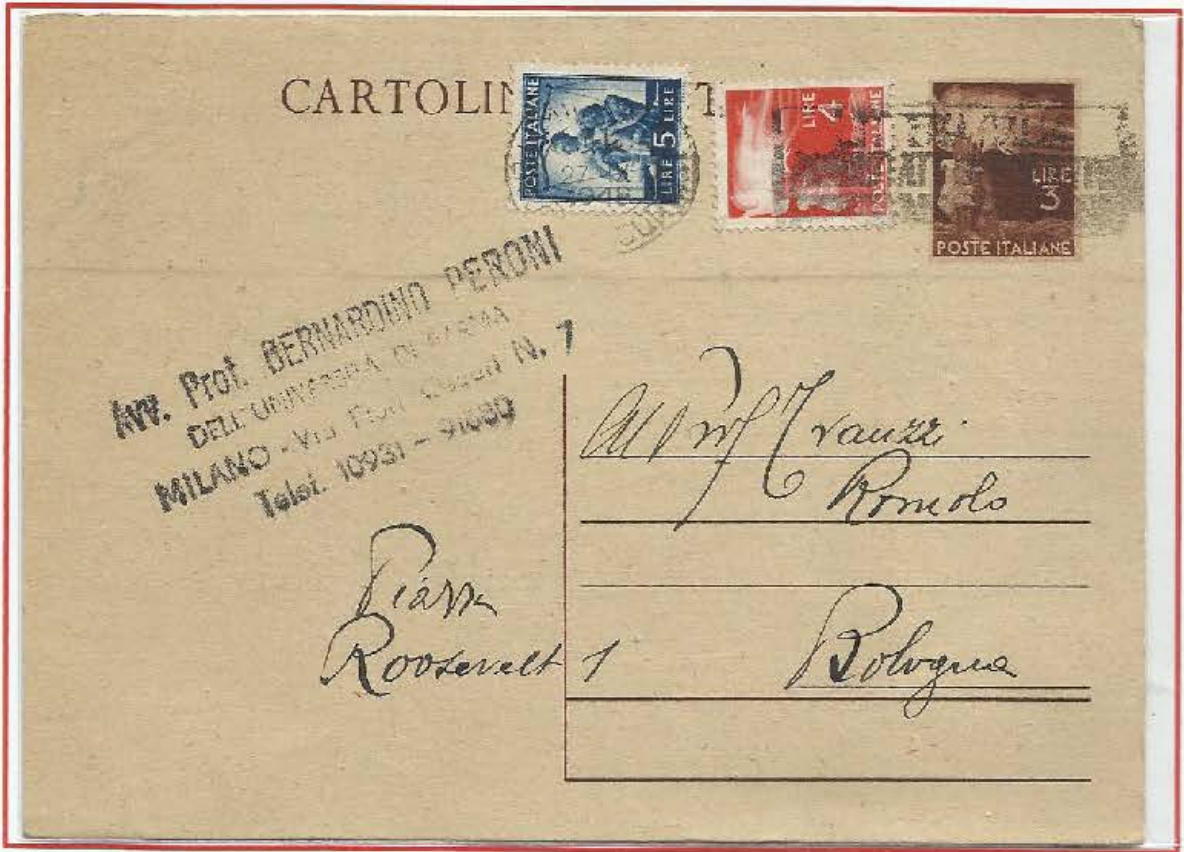 CARTOLIN
POSTE ITALIANE
LIRE 5 LIRE
LIRE
4
POSTE ITALIANE
LIRE
3
POSTE ITALIANE
Avv. Prof. BERNARDINO PERONI
DELL'UNIVERSITÀ DI PARMA
MILANO - Via N. 7
Telef. 10931 - 91080
Al Prof Trauzzi
Romolo
Piazza
Roosevelt 1
Bologna